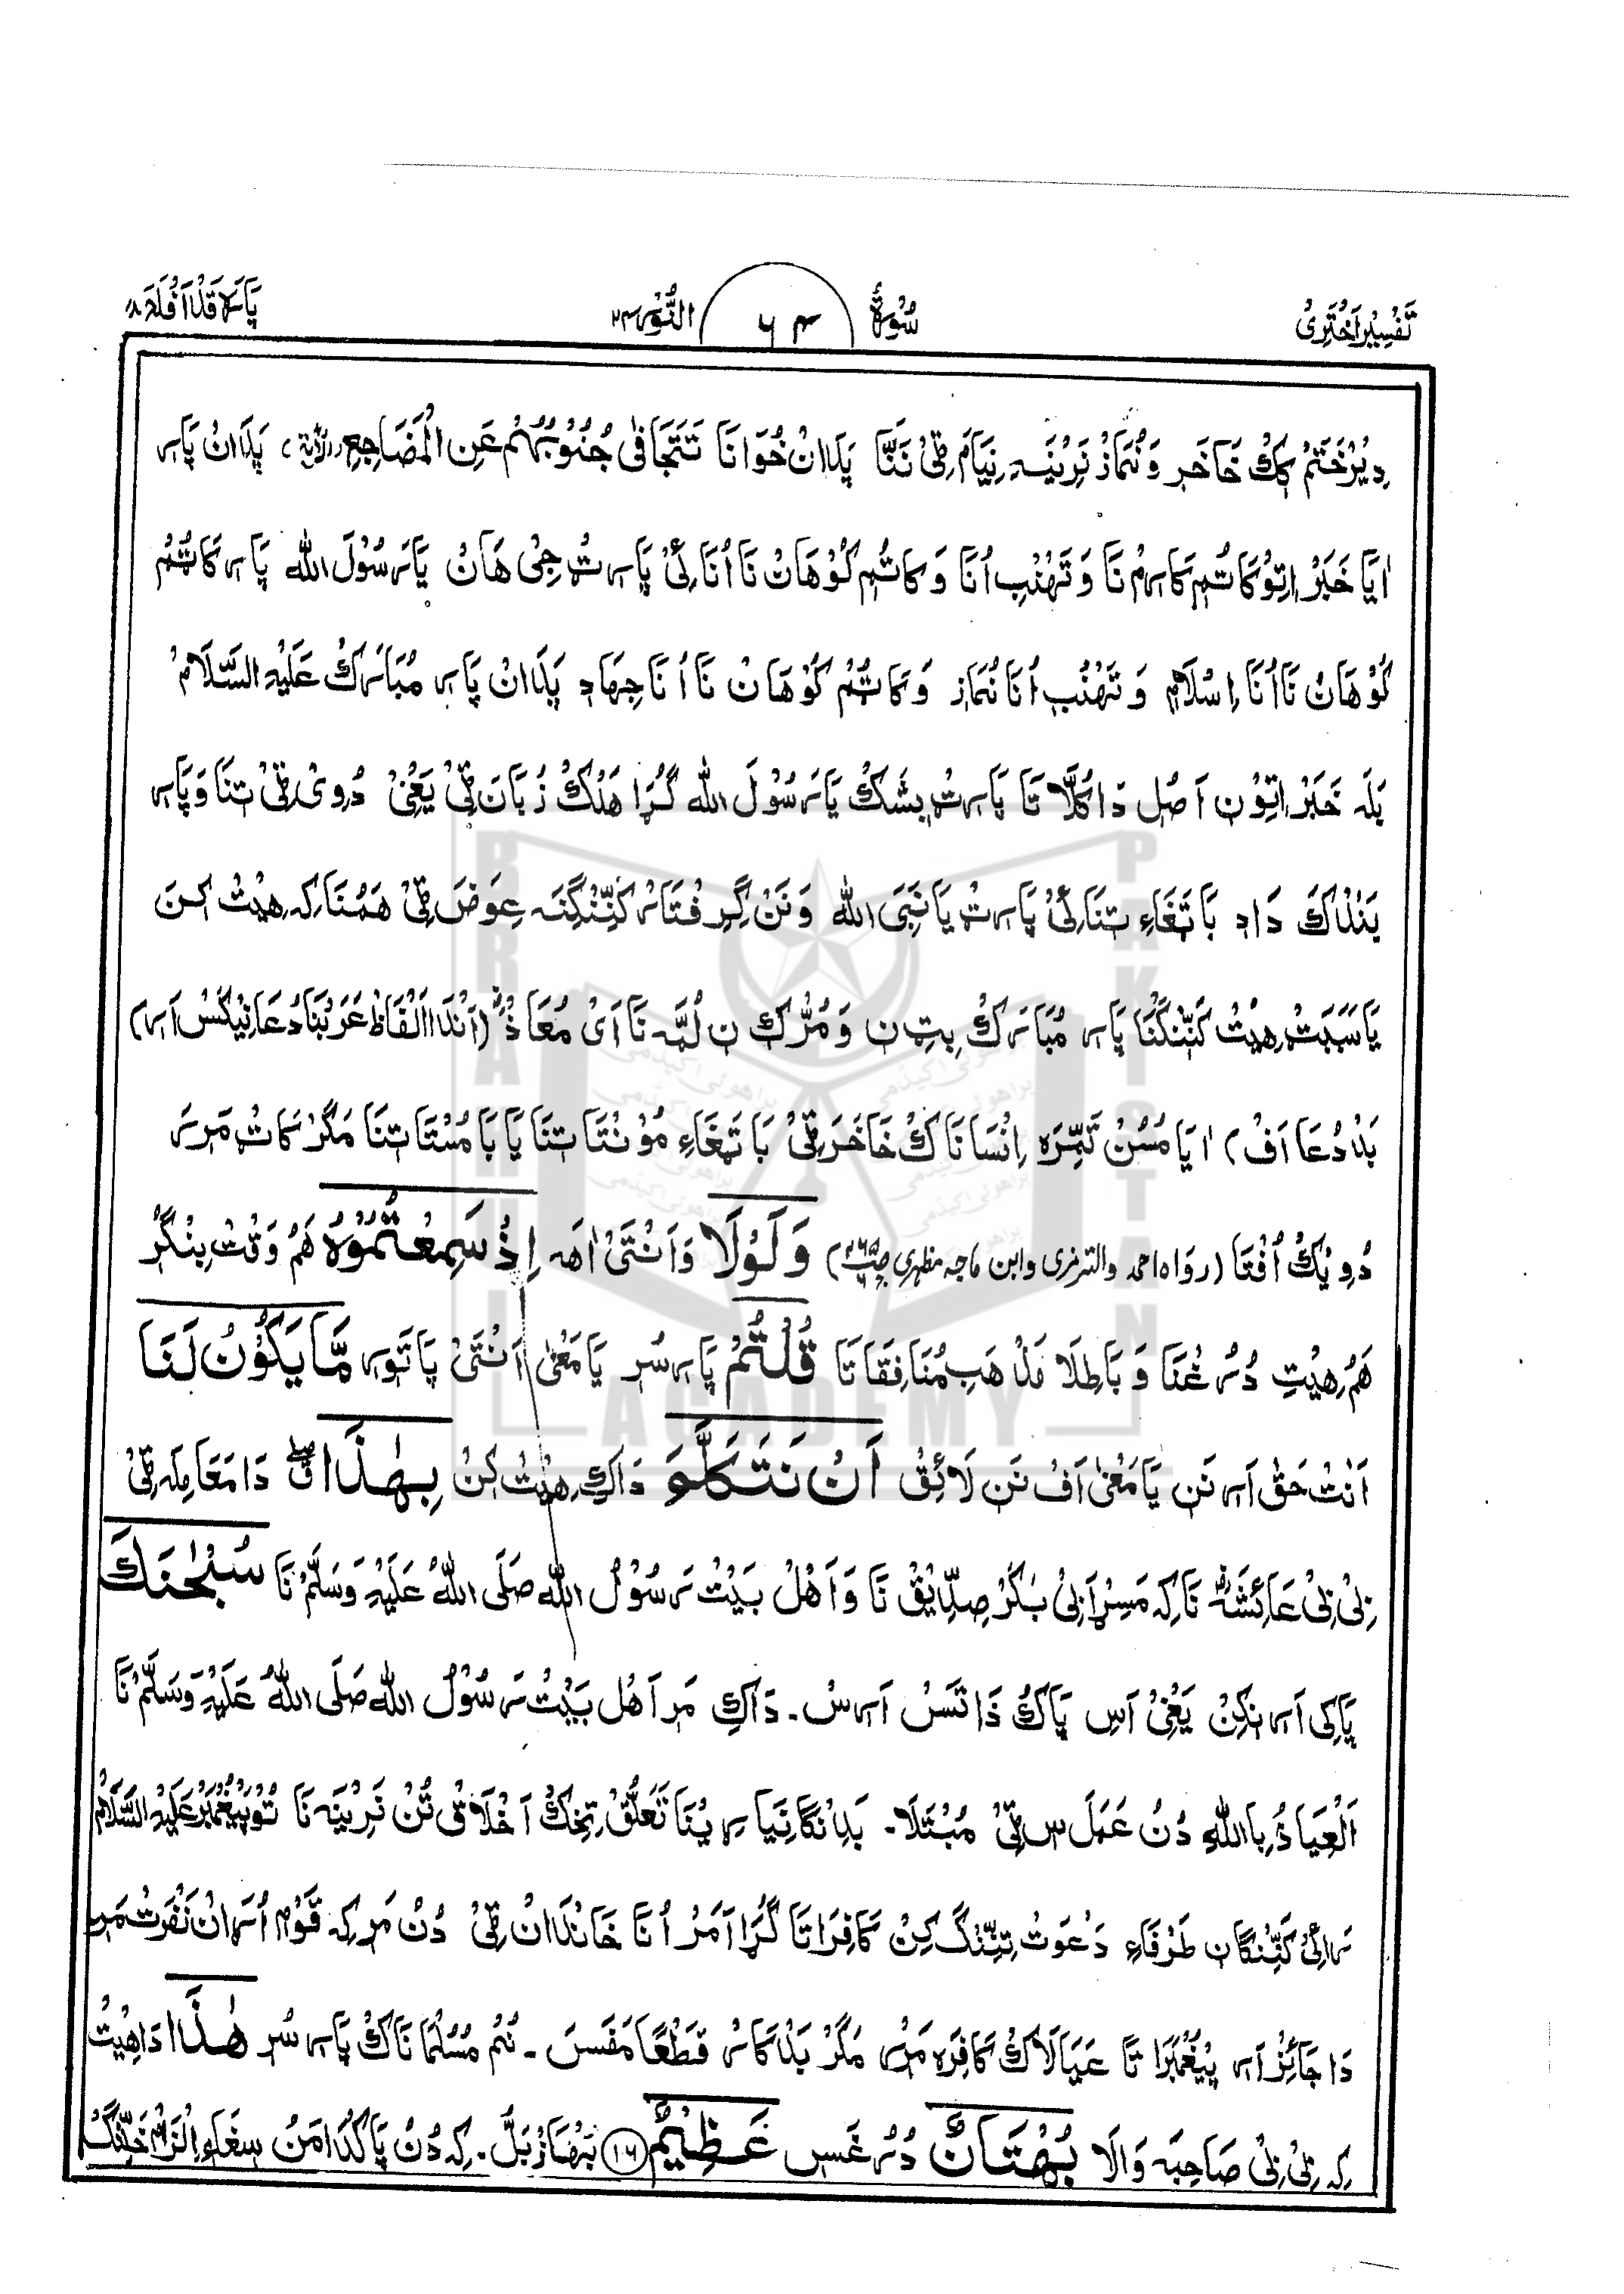 تَفْسِیْرِ اَخْتَرِیْ سُوْرَةُ ٤٦ النُّوْر ٢٤ پَارَہ قَدْ اَفْلَحَ ١٨
دِیْرْخَتِمْ کِکْ خَاخَر وَنُمَازْ نَرِیْنَہ نِیَامْ ٹِیْ نَنَّا پَدَانْ خُوَانَا تَتَجَافٰی جُنُوْبُهُمْ عَنِ الْمَضَاجِعِ (الآیۃ) پَدَانْ پَارِ
اٰیَا خَبَرْ اِتِوْ کَاٹُمْ کَارِمْ نَا وَ تَهُنْبِ اُنَا وَ کَاٹُمْ کُوْهَانْ نَا اُنَا نَیْ پَارِتْ جِیْ هَانْ یَارَسُوْلَ اللّٰہ پَارِ کَاٹُمْ
کُوْهَانْ نَا اُنَا اِسْلَامْ وَ تَهُنْبْ اُنَا نُمَازْ وَ کَاٹُمْ کُوْهَانْ نَا اُنَا جِهَادْ پَدَانْ پَارِ مُبَارَکْ عَلَیْہِ السَّلَامْ
پَلَہ خَبَرْ اِتِوْنْ اَصْل دَا کُلَّا تَا پَارِتْ بِشَکْ یَارَسُوْلَ اللّٰہ گُڑَا هَلْکْ زُبَانْ ٹِیْ یَعْنِیْ دُوِیْ ٹِیْ تِنَا وَپَارِ
بَنْدْاکْ دَادِ بَا تَغَاءِ تِنَا نَیْ پَارِتْ یَا نَبِیَ اللّٰہ وَ نَنْ گِرِفْتَارْ کَنِّنْگِنَہ عِوَضْ ٹِیْ هَمُنَا کِہ هِیْتْ کِنَ
یَا سَبَبَتْ هِیْتْ کَنِّنْگَنَا پَارِ مُبَارَکْ بِتِنْ وَ مُڑَکْ نِ لُمَّہ نَا اَیْ مُعَاذْ (اَنْدَا اَلْفَاظْ عَرَبْنَا دُعَا نِیْکَسْ اَرِ)
بَدْ دُعَا اَفْ) اٰیَا مُسُنْ تَمِّرَہ اِنْسَانَاکْ خَاخَرْ ٹِیْ بَا تَغَاءِ مُوْنْتَا تِنَا یَا بَامُسْتَا تِنَا مَگَرْ کَاتْ مَرِرَ
دُوِیْکْ اُفْتَا (رواہ احمد والترمزی وابن ماجہ مظہری) وَلَوْلَا وَ اَنْتَیْ اٰهَہ اِذْ سَمِعْتُمُوْهُ هَمْ وَقْتْ بِنْگُرْ
هَمْ هِیْتِ دُرُغْنَا وَ بَاطِلَا مَذْهَبِ مُنَافِقَاتَا قُلْتُمْ پَارِسُرْ یَا مَعْنٰی اَنْتَیْ پَاتَوِرِ مَّا یَكُوْنُ لَنَا
اَنْتْ حَقْ اَرِ نَنِ یَا مَعْنٰی اَفْ نَنِ لَائِقْ اَنْ نَّتَكَلَّمَ دَاکِ هِیْتْ کِنْ بِهٰذَا دَا مَعَامِلَہ ٹِیْ
بِیْ بِیْ عَائِشَہ نَا کِہ مَسِرْ اَبِیْ بَکَرْ صِدِّیْقْ نَا وَ اَهْلْ بَیْتْ رَسُوْلُ اللّٰہ صَلَّی اللّٰہُ عَلَیْہِ وَسَلَّمْ نَا سُبْحٰنَكَ
پَاکِی اَرِ نِکِنْ یَعْنِیْ اَسِ پَاکْ ذَاتَسْ اَرِسْ۔ دَاکِ مَر اَهْلْ بَیْتْ رَسُوْلُ اللّٰہ صَلَّی اللّٰہُ عَلَیْہِ وَسَلَّمْ نَا
اَلْعِیَاذُ بِاللّٰہِ دُنْ عَمَلْ سِ ٹِیْ مُبْتَلَا۔ بَدِنْگَا نِیَارِیْنَا تَعَلُّقْ تِخِکْ اَخْلَاقْ ٹُنْ نَرِیْنَہ نَا تُوْ پَیْغَمْبَرْ عَلَیْہِ السَّلَامْ
رَائِیْ کَنِّنْگَانْ طَرْفَاءِ دَعْوَتْ تِنِّنْگْ کِنْ کَافِرَاتَا گُڑَا اَمَرْ اُنَا خَانْدَانْ ٹِیْ دُنْ مَرِ کِہ قَوْمْ اُرَانْ نَفْرَتْ مَرِ
دَا جَائِزْ اَرِ پَیْغَمْبَرَاتَا عَیَالَاکْ کَافِرَہ مَرِرْ مَگَرْ بَدْکَارْ قَطْعًا مَفَسَ۔ نُمْ مُسُلْمَانَاکْ پَارِسُرْ هٰذَا دَا هِیْتْ
کِہ بِیْ بِیْ صَاحِبَہ وَالَا بُهْتَانٌ دُرُغَسِ عَظِیْمٌ ١٦ بَهَازْ بَلُّ۔ کِہ دُنْ پَاکْدَامَنْ سِغَاءِ اِلْزَامْ خَلِّنْگْ